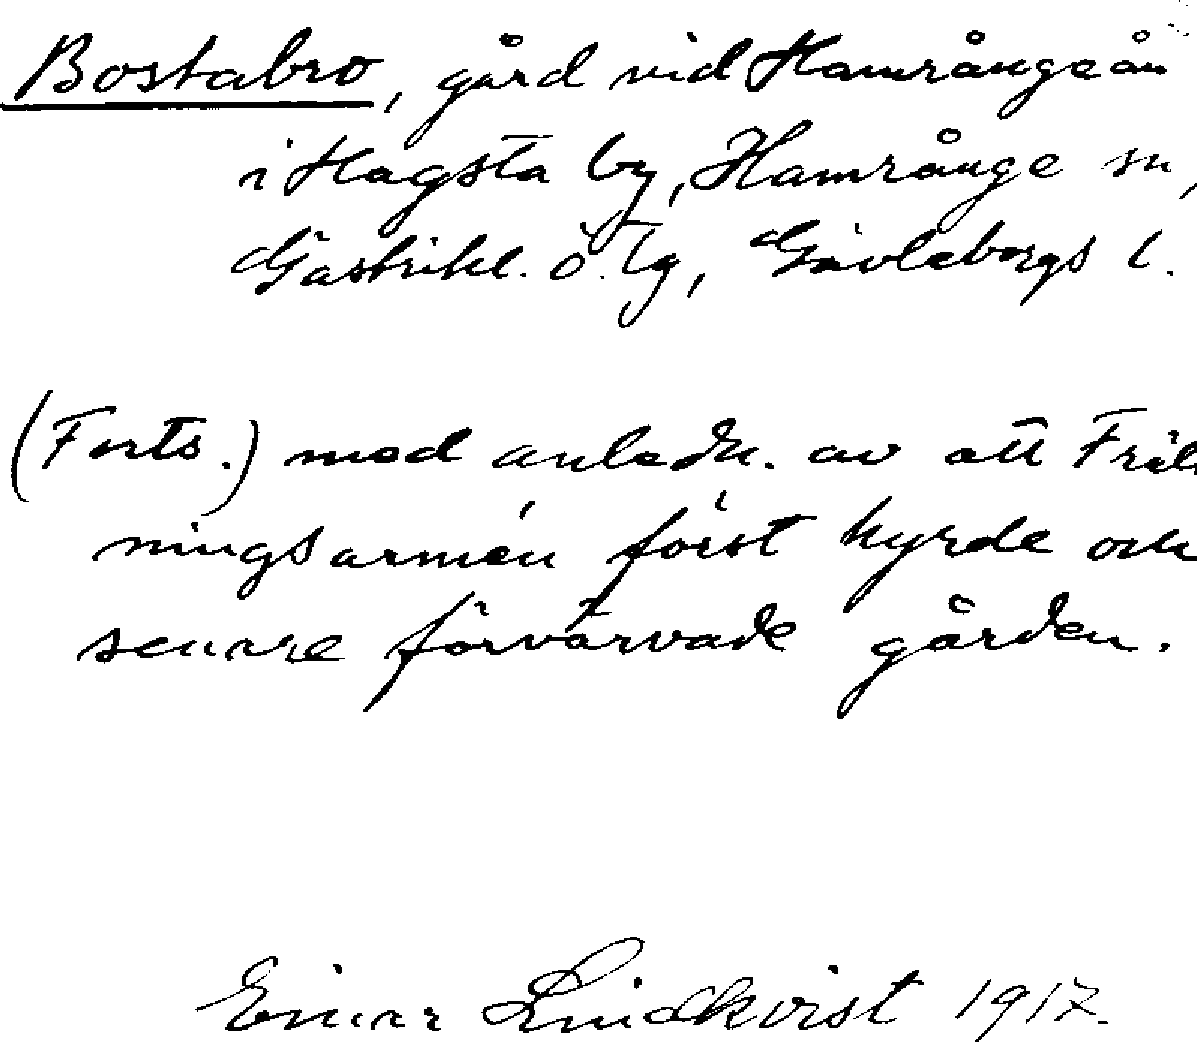 Bostabro, gård vid Hamrångeån
i Hagsta by, Hamrånge sn,
Gästrikl. ö. tg, Gävleborgs l.
(Forts.) med anledn. av att Fräls
ningsarmén först hyrde och
senare förvärvade gården.
Einar Lindkvist 1917.